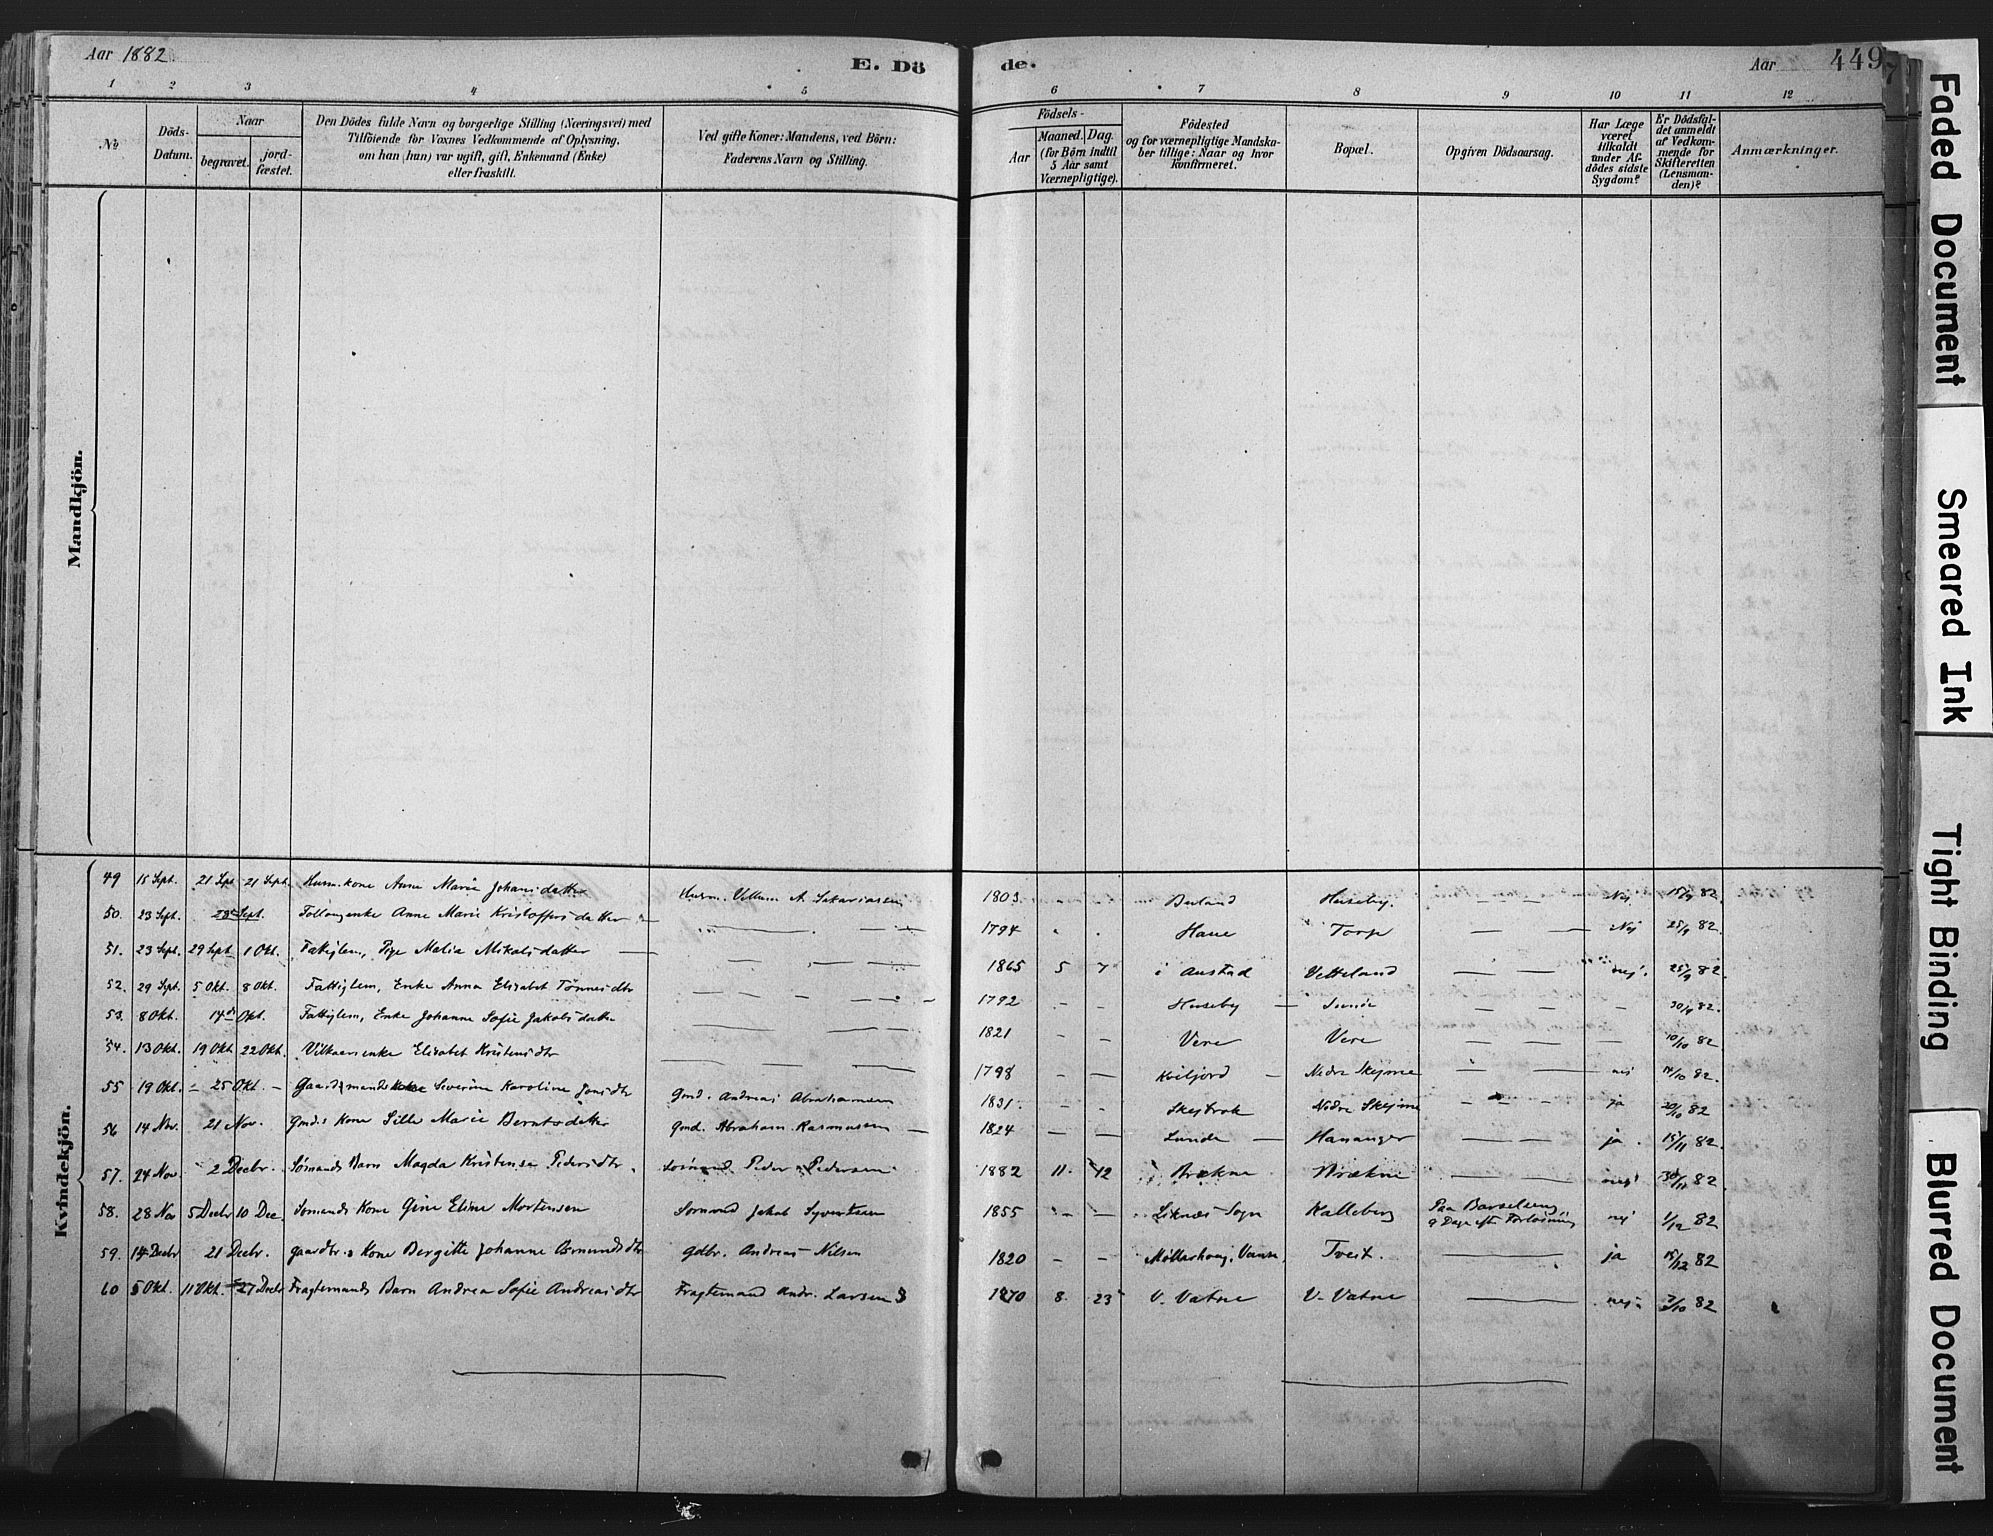 Aar 1882
E. Dö
de.
Aar
449
1 2 3 4 5 6 7 8 9 10 11 12
No
Döds-Datum.
Naar
begravet.
jord-fæstet.
Den Dödes fulde Navn og borgerlige Stilling (Næringsvei) med
Tilföiende for Voxnes Vedkommende af Oplysning,
om han (hun) var ugift, gift, Enkemand (Enke)
eller fraskilt.
Ved gifte Koner: Mandens, ved Börn:
Faderens Navn og Stilling.
Födsels-
Aar
Maaned. Dag.
(for Börn indtil
5 Aar samt
Værnepligtige).
Födested
og for værnepligtige Mandska-
ber tillige: Naar og hvor
konfirmeret.
Bopæl.
Opgiven Dödsaarsag.
Har Læge
været
tilkaldt
under Af-
dödes sidste
Sygdom?
Er Dödsfal-
det anmeldt
af Vedkom-
mende for
Skifteretten
(Lensman-
den)?
Anmærkninger.
Mandkjön.
Kvindekjön.
49 15 Sept. 21 Sept 21 Sept. Husm. kone Anne Marie Johansdatter Husm. Villum A. Sakariassen 1803 Huseby. Nej 15/9 82.
50. 23 Sept. 28 Sept. Anne Marie Kristoffersdatter 1794 Haue Torp Nej 25/9 82.
51. 23 Sept. 29 Sept 1 Okt. Fattiglem, Pige Malia Mikalsdatter 1865 5 7 i Austad Vetteland nej. 25/9 82.
52. 29 Sept. 5 Okt. 8 Okt. Fattiglem, Enke Anna Elisabet Tönnesdtr 1792 Huseby 30/9 82.
53. 8 Okt. 14 Okt. Fattiglem, Enke Johanne Sofie Jakobsdatter 1821 Vere Vere 10/10 82
54. 13 Okt. 19 Okt 22 Okt. Elisabet Kristensdtr 1798 Kviljord Nedre Skejme nej 14/10 82.
55 19 Okt. 25 Okt. Gaardsmands kone Severine Karoline Jonsdtr Gmd. Andreas Abrahamsen 1831. Skejbrok Nedre Skejme ja 20/10 82
56 14 Nov. 21 Nov. Gmd.s Kone Sille Marie Berntsdatter Gmd. Abraham Rasmussen 1824 Lunde Hananger ja. 15/11 82.
57. 24 Nov. 2 Decbr. Sömands Barn Magda Kristense Pedersdtr. Sömand Peder Pedersen 1882 11. 12 Brækne Brækne nej 30/11 82.
58. 28 Nov 5 Decbr 10 Dec. Sömands Kone Gine Eline Mortensen Sömand Jakob Syvertsen 1855 Liknes Sogn Kalleberg Paa Barselseng, 9 Dage efter Forlösning nej 1/12 82.
59. 14 Decbr 21 Decbr. Gaardbr.s Kone Bergitte Johanne Asmundsdtr Gdbr. Andreas Nilsen 1820 Möllerhaug, Vanse Tveit. ja 15/12 82
60 5 Okt. 11 Okt. 27 Decbr Fragtemands Barn Andrea Sofie Andreasdtr Fragtemand Andr. Larsen 1870 8. 23 V. Vatne V. Vatne nej 7/10 82
Faded Document
Smeared Ink
Tight Binding
Blurred Document